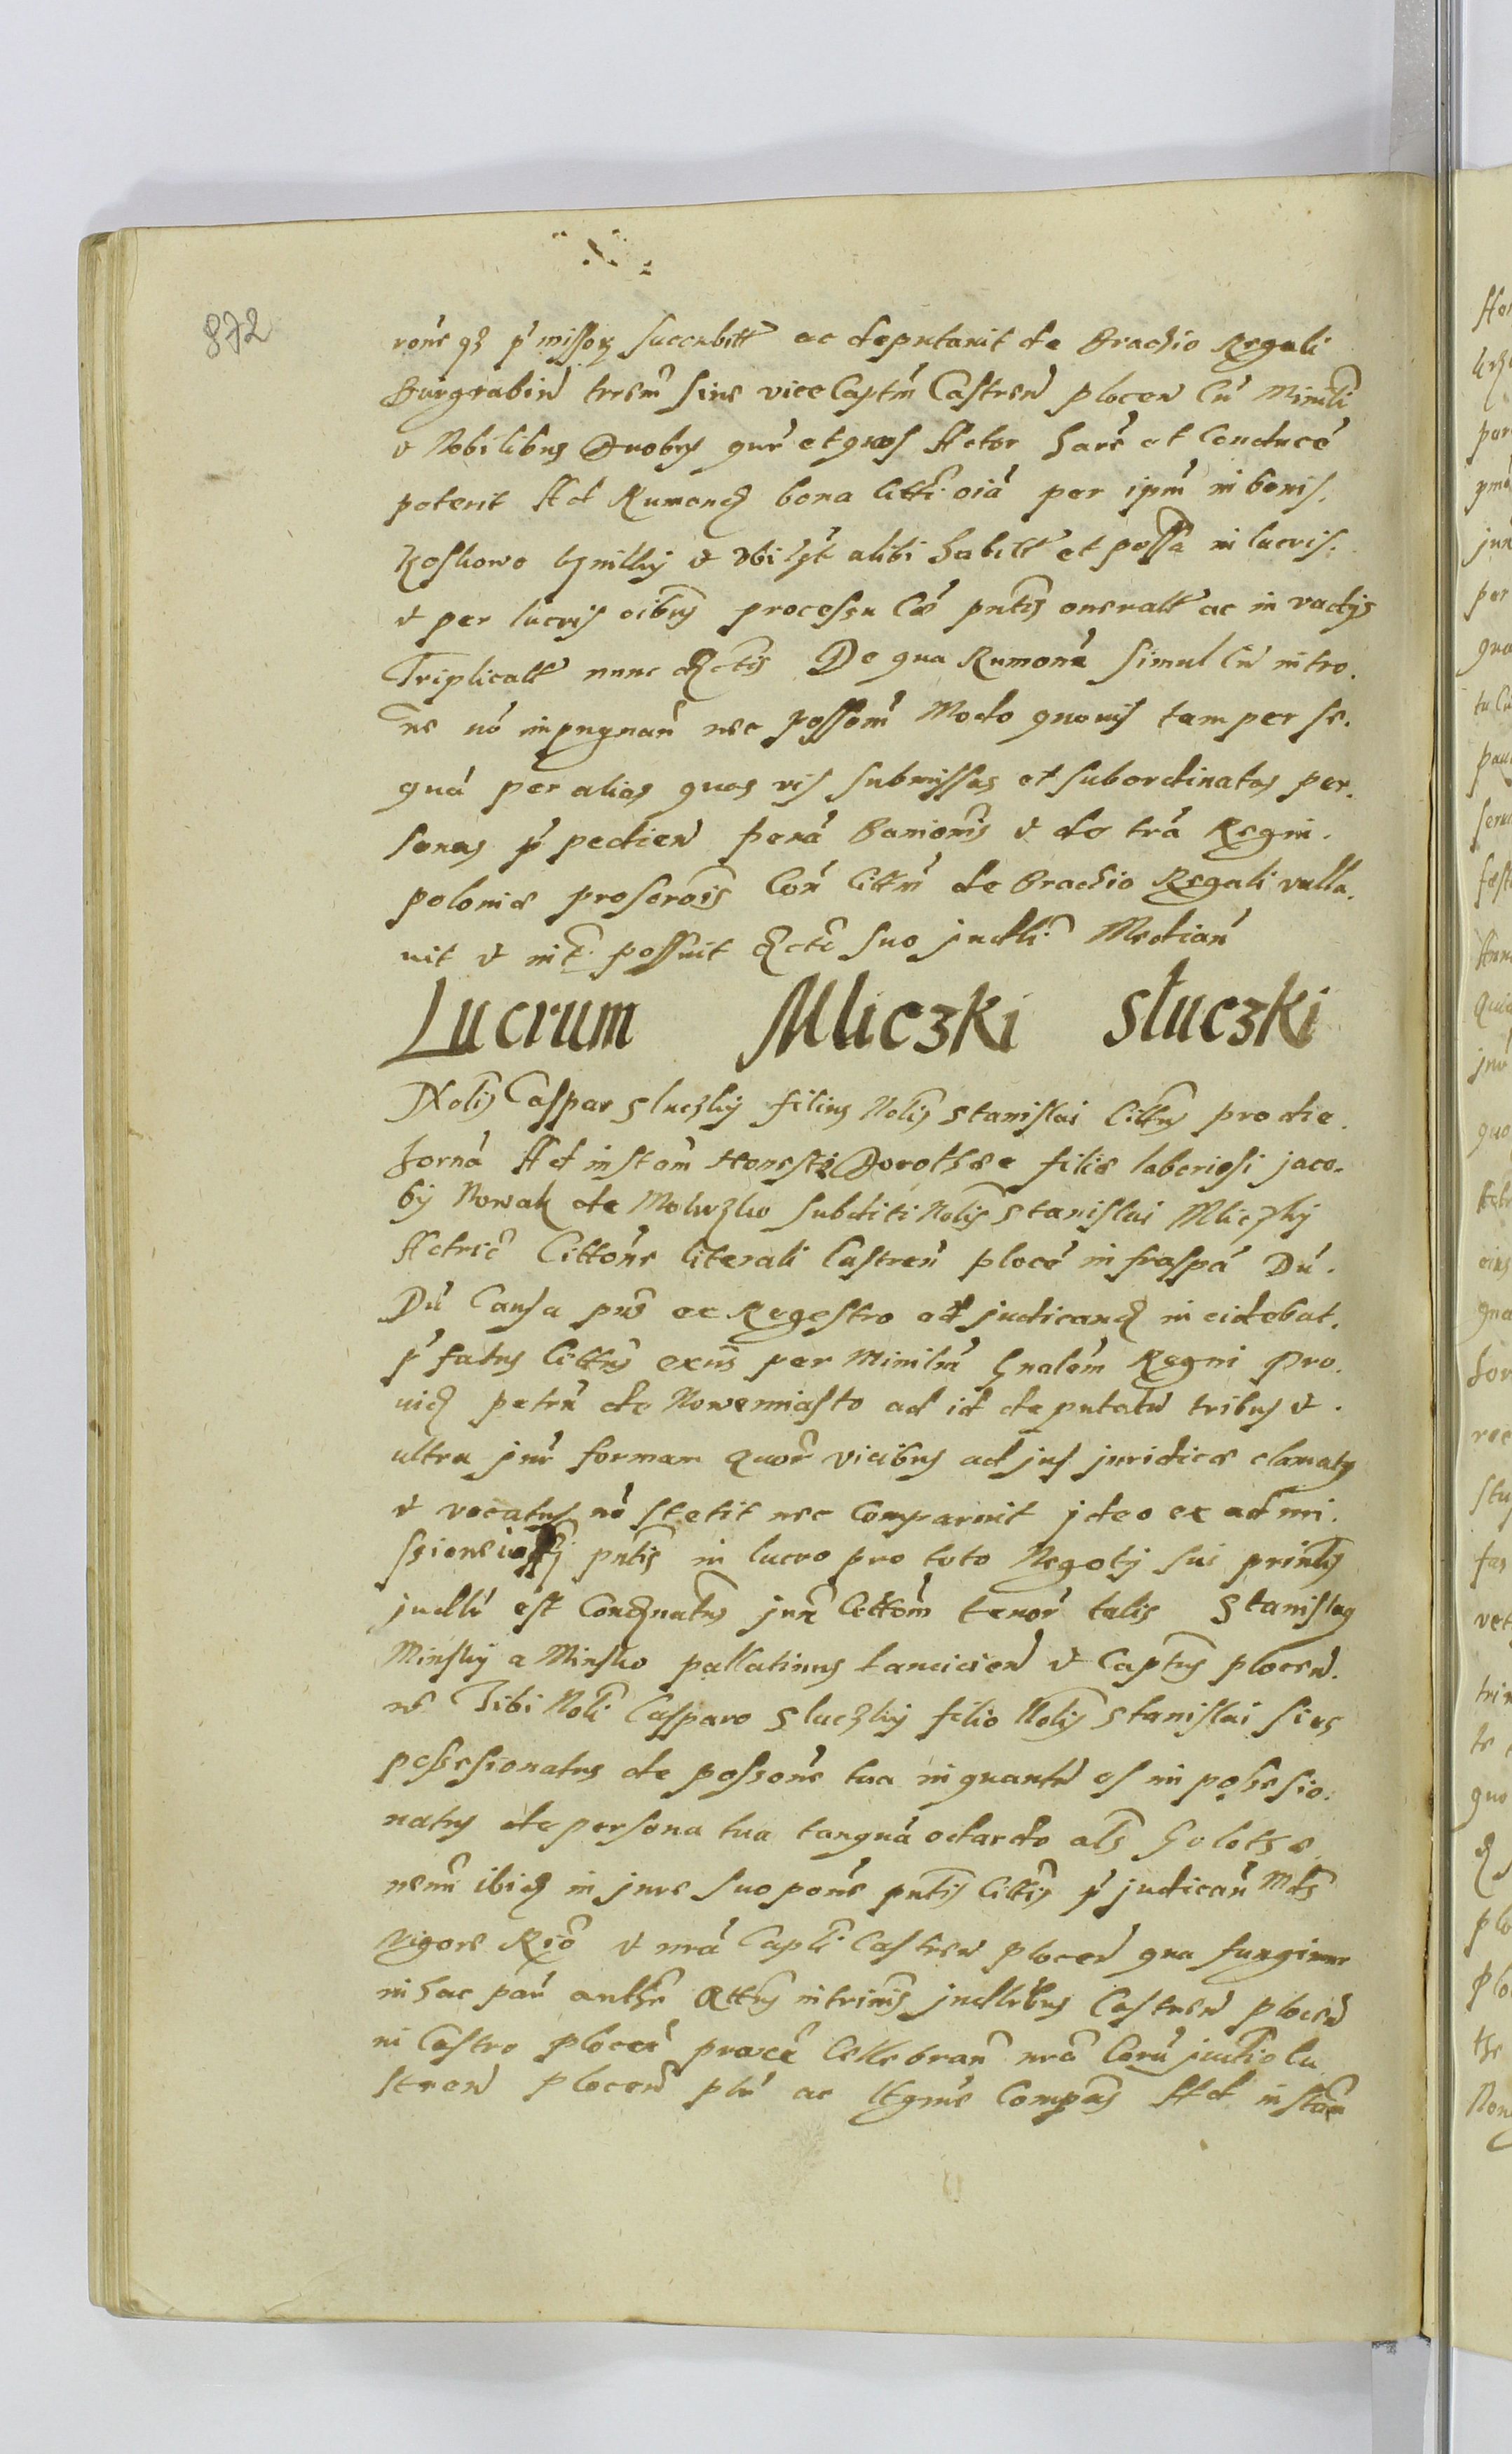 872
rone qz pmissoz succubitt ac deputavit de Brachio Regali
Burgrabin trrem sive viceCaptm Castren plocen Cu Minili
et Nobilibus Duobus qur et quos Actor hare et Conduce
poterit Ad Rumandz bona Citti oia per ipm in bonis
Koskowo et ubi alibi habitt et possa in lucris
et per lucris oibus processu Cae pntis oneratt ac in vadys
Triplicatt nunc De qua Rumone simul Cu intro
ne no inpugnan nec possom Modo quovis tam per se
qua per alias quas vis submissas et subordinatas per
sonas p pedien pena Banionis et de tra Regni
polonie proscrois Con Cittm de Brachio Regali valla
vit et possuit suo judli Median
Lucrum Mliczki słuczki
Nolis Caspar sluczky filius Nolis Stanislai Cittus pro die
horna Ad instam Honeste Dorothee filie laboriosi jaco
by Nowak de subditi Nolis Stanislai Mliczky
Actric Cittone literali Castren ploce infraspa Du
Du Causa pns ex Regestro ad judicandz incidebat
p fatus Cittus exns per Minilm Gnalem Regni Pro
vidz petru de Nowemiasto ad id deputatu tribus et
ultra jur formam quor vicibus ad jus juridice clamatus
et vocatus no stetit nec Comparuit jdeo ex admi
ssione pntis in lucro pro toto Negoty sui printis
judli est Condznatus jux Cittom tenor talis Stanislaus
Minsky a Minsko pallatinus Lancicien et Captus plocen
Tibi Noli Casparo sluczky filio Nolis Stanislai sies
possesionatus de possone tua inquantu es inpossesio
natus de persona tua tanqua odardo als Golothe
nenn ibidz in jure suo pone pntis Cittis p judican Mds
vigore Reo et nra Capli Castren plocen qua fungimur
in hac par in trinis judlibus Castren plocen
in Castro plocen proxe Cellebran nra Coru judtio Ca
stren plocen plu ac Compas Ad instam